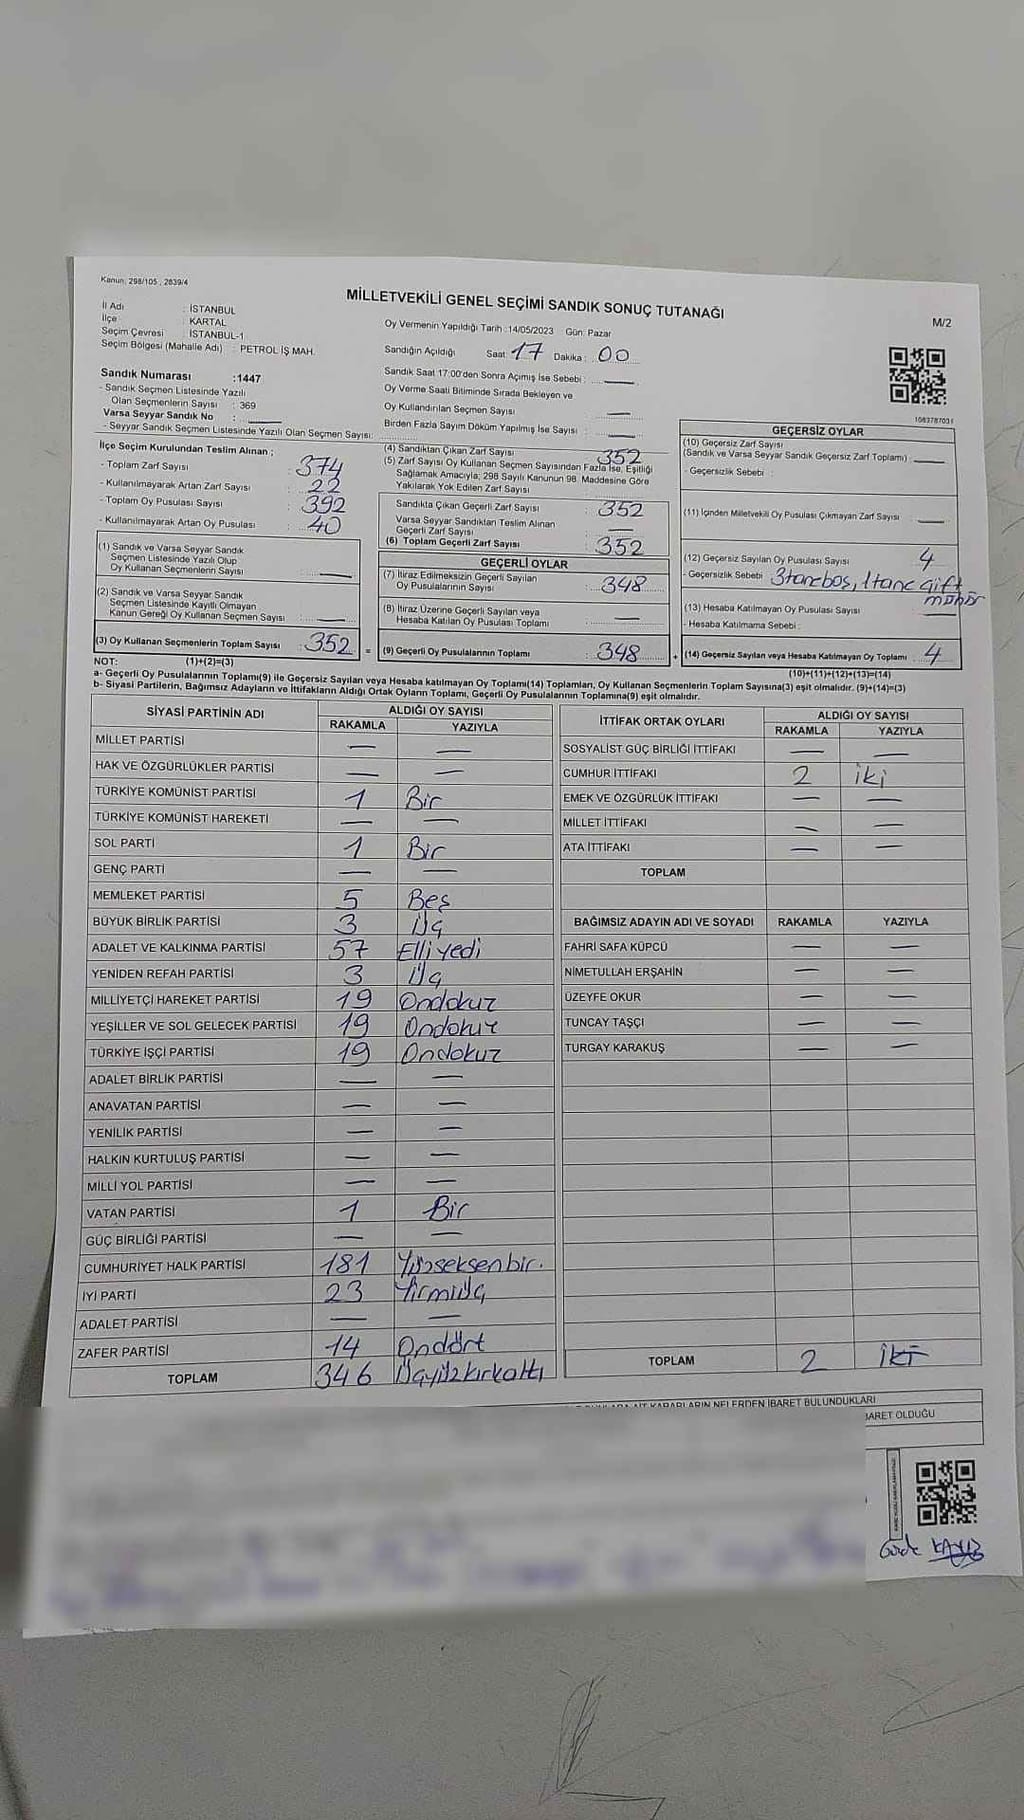 Kanun; 298/105 , 2839/4
MİLLETVEKİLİ GENEL SEÇİMİ SANDIK SONUÇ TUTANAĞI
M/2
İl Adı : İSTANBUL
İlçe : KARTAL
Seçim Çevresi : İSTANBUL-1
Seçim Bölgesi (Mahalle Adı) : PETROL İŞ MAH.
Sandık Numarası :1447
- Sandık Seçmen Listesinde Yazılı
Olan Seçmenlerin Sayısı : 369
Varsa Seyyar Sandık No :
- Seyyar Sandık Seçmen Listesinde Yazılı Olan Seçmen Sayısı:
Oy Vermenin Yapıldığı Tarih :14/05/2023 Gün: Pazar
Sandığın Açıldığı Saat 17 Dakika : 00
Sandık Saat 17:00'den Sonra Açımış İse Sebebi : —
Oy Verme Saati Bitiminde Sırada Bekleyen ve
Oy Kullandırılan Seçmen Sayısı —
Birden Fazla Sayım Döküm Yapılmış İse Sayısı : —
1083787031
İlçe Seçim Kurulundan Teslim Alınan ;
- Toplam Zarf Sayısı : 374
- Kullanılmayarak Artan Zarf Sayısı : 22
- Toplam Oy Pusulası Sayısı : 392
- Kullanılmayarak Artan Oy Pusulası : 40
(1) Sandık ve Varsa Seyyar Sandık
Seçmen Listesinde Yazılı Olup
Oy Kullanan Seçmenlerin Sayısı : —
(2) Sandık ve Varsa Seyyar Sandık
Seçmen Listesinde Kayıtlı Olmayan
Kanun Gereği Oy Kullanan Seçmen Sayısı : —
(3) Oy Kullanan Seçmenlerin Toplam Sayısı : 352 =
(4) Sandıktan Çıkan Zarf Sayısı : 352
(5) Zarf Sayısı Oy Kullanan Seçmen Sayısından Fazla İse, Eşitliği
Sağlamak Amacıyla; 298 Sayılı Kanunun 98. Maddesine Göre
Yakılarak Yok Edilen Zarf Sayısı
Sandıkta Çıkan Geçerli Zarf Sayısı : 352
Varsa Seyyar Sandıktan Teslim Alınan
Geçerli Zarf Sayısı : —
(6) Toplam Geçerli Zarf Sayısı : 352
GEÇERLİ OYLAR
(7) İtiraz Edilmeksizin Geçerli Sayılan
Oy Pusulalarının Sayısı : 348
(8) İtiraz Üzerine Geçerli Sayılan veya
Hesaba Katılan Oy Pusulası Toplamı : —
(9) Geçerli Oy Pusulalarının Toplamı : 348 +
GEÇERSİZ OYLAR
(10) Geçersiz Zarf Sayısı
(Sandık ve Varsa Seyyar Sandık Geçersiz Zarf Toplamı) : —
- Geçersizlik Sebebi :
(11) İçinden Milletvekili Oy Pusulası Çıkmayan Zarf Sayısı : —
(12) Geçersiz Sayılan Oy Pusulası Sayısı : 4
- Geçersizlik Sebebi : 3tane boş, 1tane çift
mühür
(13) Hesaba Katılmayan Oy Pusulası Sayısı : —
- Hesaba Katılmama Sebebi :
(14) Geçersiz Sayılan veya Hesaba Katılmayan Oy Toplamı : 4
NOT: (1)+(2)=(3)
(10)+(11)+(12)+(13)=(14)
a- Geçerli Oy Pusulalarının Toplamı(9) ile Geçersiz Sayılan veya Hesaba katılmayan Oy Toplamı(14) Toplamları, Oy Kullanan Seçmenlerin Toplam Sayısına(3) eşit olmalıdır. (9)+(14)=(3)
b- Siyasi Partilerin, Bağımsız Adayların ve İttifakların Aldığı Ortak Oyların Toplamı, Geçerli Oy Pusulalarının Toplamına(9) eşit olmalıdır.
SİYASİ PARTİNİN ADI ALDIĞI OY SAYISI
RAKAMLA YAZIYLA
MİLLET PARTİSİ — —
HAK VE ÖZGÜRLÜKLER PARTİSİ — —
TÜRKİYE KOMÜNİST PARTİSİ 1 Bir
TÜRKİYE KOMÜNİST HAREKETİ — —
SOL PARTİ 1 Bir
GENÇ PARTİ — —
MEMLEKET PARTİSİ 5 Beş
BÜYÜK BİRLİK PARTİSİ 3 Üç
ADALET VE KALKINMA PARTİSİ 57 Elliyedi
YENİDEN REFAH PARTİSİ 3 Üç
MİLLİYETÇİ HAREKET PARTİSİ 19 Ondokuz
YEŞİLLER VE SOL GELECEK PARTİSİ 19 Ondokuz
TÜRKİYE İŞÇİ PARTİSİ 19 Ondokuz
ADALET BİRLİK PARTİSİ — —
ANAVATAN PARTİSİ — —
YENİLİK PARTİSİ — —
HALKIN KURTULUŞ PARTİSİ — —
MİLLİ YOL PARTİSİ — —
VATAN PARTİSİ 1 Bir
GÜÇ BİRLİĞİ PARTİSİ — —
CUMHURİYET HALK PARTİSİ 181 Yüzseksenbir.
İYİ PARTİ 23 Yirmiüç
ADALET PARTİSİ — —
ZAFER PARTİSİ 14 Ondört
TOPLAM 346 Üçyüzkırkaltı
İTTİFAK ORTAK OYLARI ALDIĞI OY SAYISI
RAKAMLA YAZIYLA
SOSYALİST GÜÇ BİRLİĞİ İTTİFAKI — —
CUMHUR İTTİFAKI 2 iki
EMEK VE ÖZGÜRLÜK İTTİFAKI — —
MİLLET İTTİFAKI — —
ATA İTTİFAKI — —
TOPLAM
BAĞIMSIZ ADAYIN ADI VE SOYADI RAKAMLA YAZIYLA
FAHRİ SAFA KÜPCÜ — —
NİMETULLAH ERŞAHİN — —
ÜZEYFE OKUR — —
TUNCAY TAŞÇI — —
TURGAY KARAKUŞ — —
TOPLAM 2 İKİ
KARARLARIN NELERDEN İBARET BULUNDUKLARI
İBARET OLDUĞU